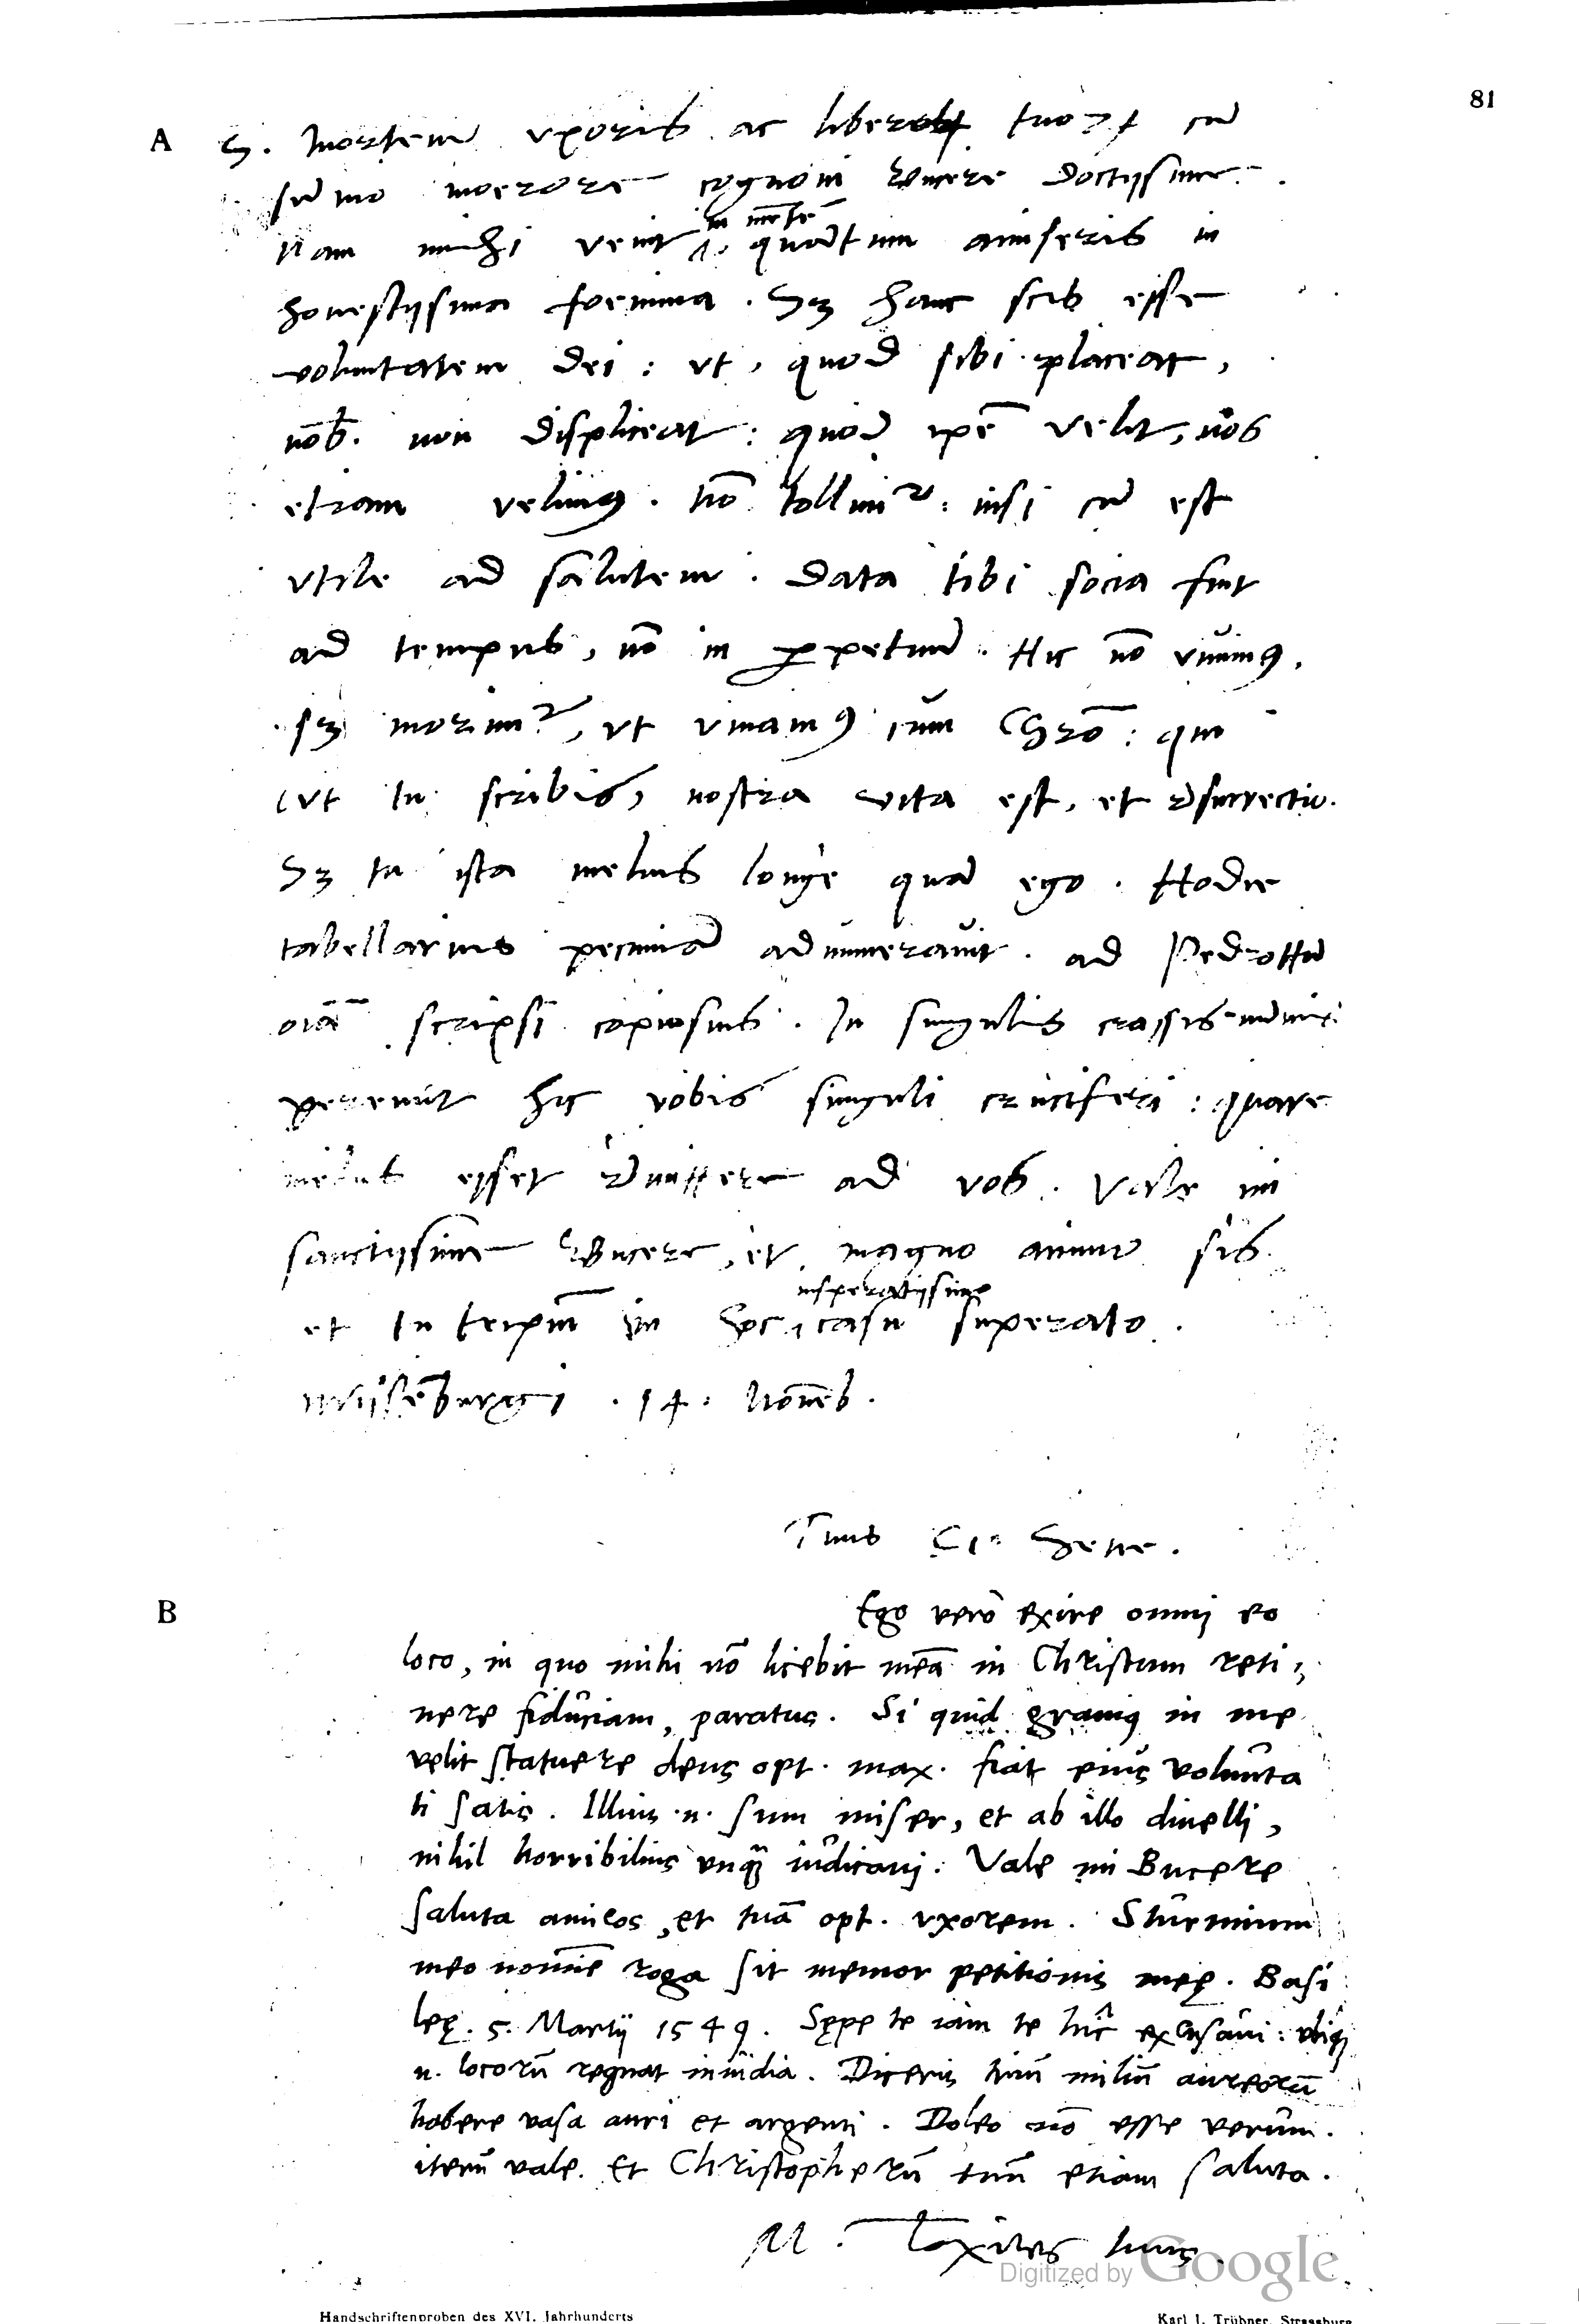 81
A
S. Mortem vxoris ac liberorꝝ tuorꝝ cū
sūmo moerore cognoui Bucere doctissime.
Nam mihi venit in mētē quātum amiseris in
honestissima foemina. Sꝫ hanc scis esse
voluntatem dei: vt, quod sibi placeat,
nōb. non displiceat: quod ipē velit, nos
etiam velimꝰ. Nō tollimr: nisi cū est
vtile ad salutem. Data tibi socia fuit
ad tempus, nō in ꝑpetuū. Hic nō viuimꝰ,
sꝫ morimr, vt viuamꝰ cum Chrō: qui
(vt tu scribis) nostra vita est, et rsurrectio.
Sꝫ tu ista melius longe quā ego. Hodie
tabellarius pecuniā adnumerauit. ad Pedrottū
oīa scripsi copiosius. In singulis crassis
pereunt hic vobis singuli cruciferi: quare
melius esset rmittere ad vos. Vale mi
sanctissime Bucere, et magno animo sis
et in hoc insperatissimo casu superato.
14. Nouēb.
Tuus
B
Ego verò exire omnj eo
loco, in quo mihi nō licebit meā in Christum reti-
nere fiduciam, paratus. Si quid grauiꝰ in me
velit statuere deus opt. max. fiat eius volunta
ti satis. Illius .n. sum miser, et ab illo diuelli,
nihil horribilius vnqꝫ iudicauj. Vale mi Bucere
saluta amicos, et tuā opt. vxorem. Sturmium
meo nomīe roga sit memor petitionis meę. Basi
leę. 5. Martij 1549. Sępe te iam te hic excusaui: vbiqꝫ
n. locorū regnat inuidia. Diceris trium miliū aureorū
habere vasa auri et argenti. Doleo nō esse verum.
iterū vale. Et Christopherū tuū etiam saluta.
M. Toxites tuus.
Digitized by Google
Handschriftenproben des XVI. Jahrhunderts
Karl J. Trübner, Strassburg